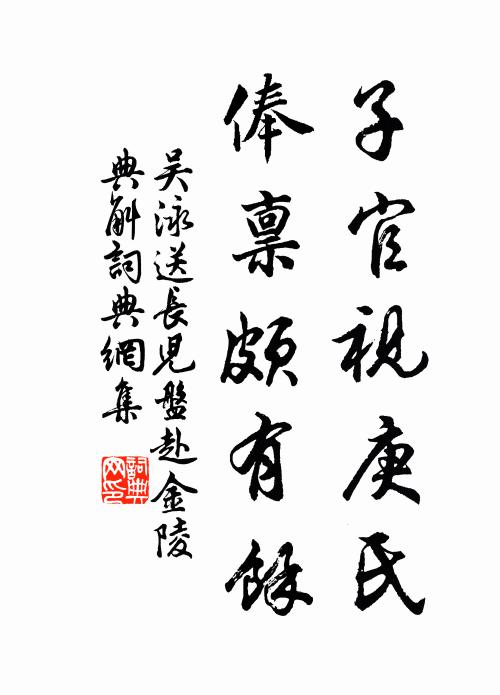 子官視庚氏
俸稟頗有餘
吴泳送長兒盤赴金陵
典解詞典網集
詞典网印